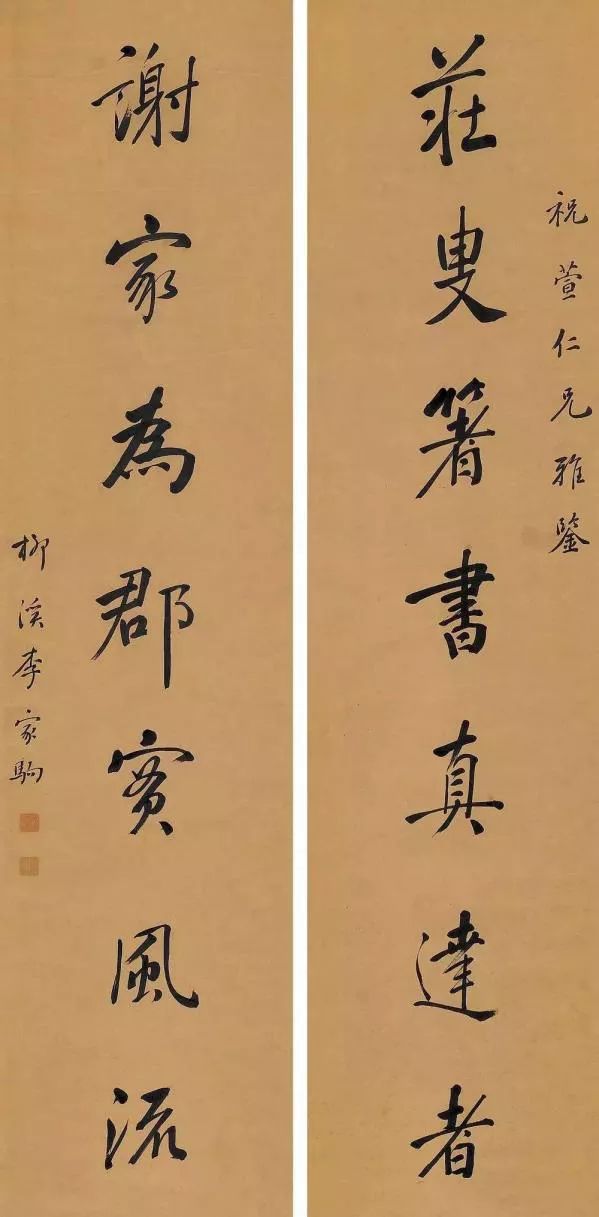 祝萱仁兄雅鑒
莊叟箸書真達者
謝家為郡實風流
柳溪李家駒